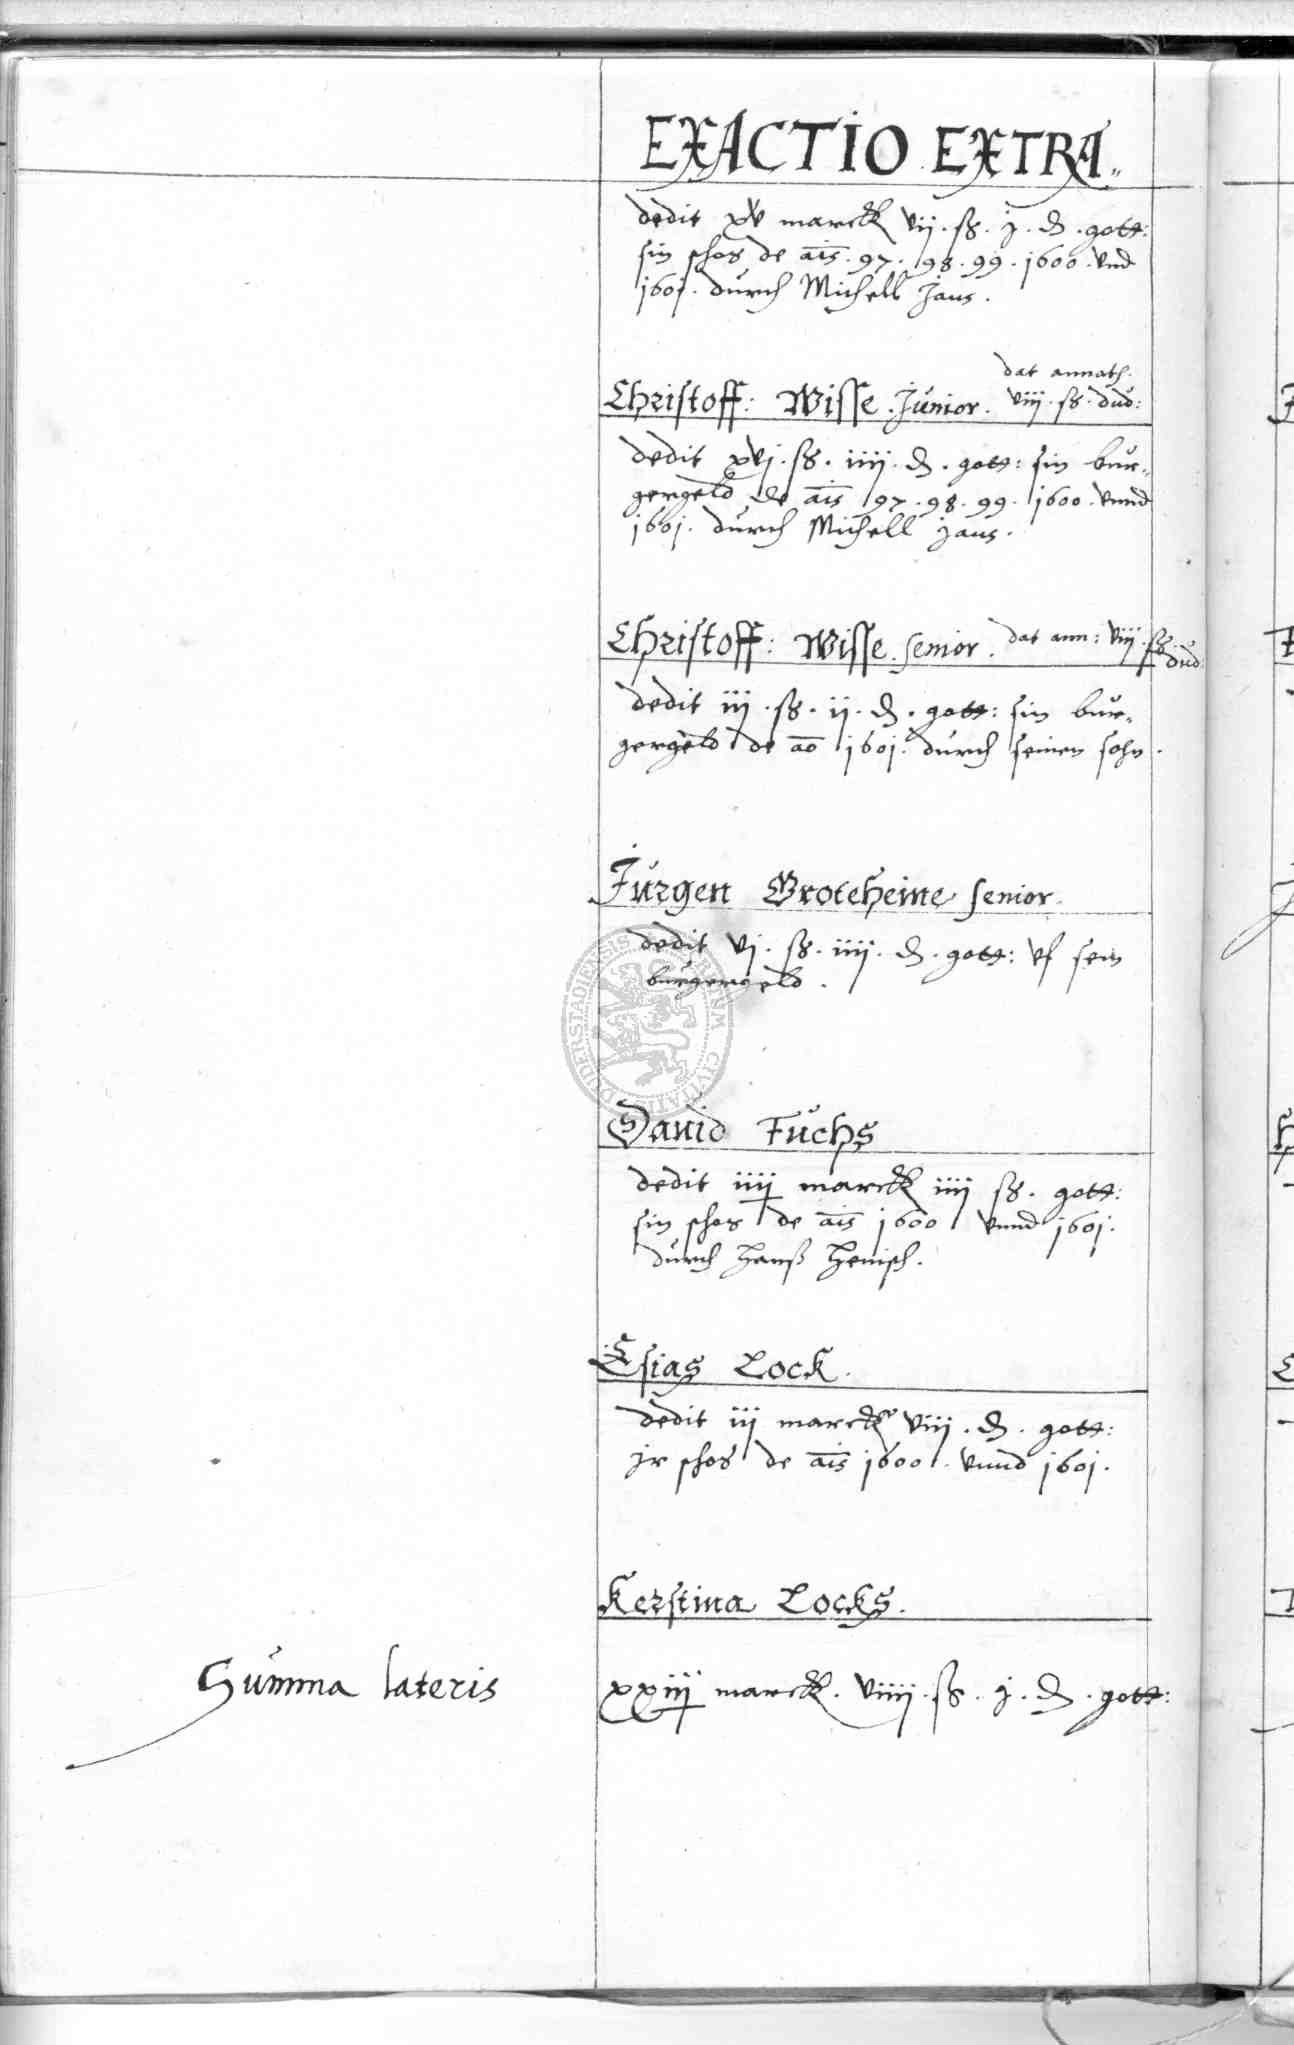 EXACTIO EXTRA„
dedit xv marck vij . ß . j . d . gott:
sin schos de ais . 97 . 98 . 99 . 1600 . vnd
1601 . durch Michell Jaus .
dat annath .
Christoff: Wisse . Junior . viij . ß . dud:
dedit xvj . ß . iiij . d . gott: sin bur„
gergeld de ais 97 . 98 . 99 . 1600 . vnnd
1601 . durch Michell Jaus .
Christoff: Wisse . senior . dat ann: viij . ß . dud:
dedit iij . ß . ij . d . gott: sin bur„
gergeld de ao 1601 . durch seinen sohn .
Jurgen Groteheine senior .
dedit vj . ß . iiij . d . gott: vf sein
burgergeld .
Dauid Fuchs
dedit iiij marck iiij ß . gott:
sin schos de ais 1600 vnnd 1601 .
durch Hanß Henisch .
Esias Lock .
dedit iij marck viij . d . gott:
jr schos de ais 1600 . vnnd 1601 .
Kerstina Locks .
Summa lateris xxiij marck . viiij . ß . j . d . gott:
DUDERSTADIENSIS CIVITATIS